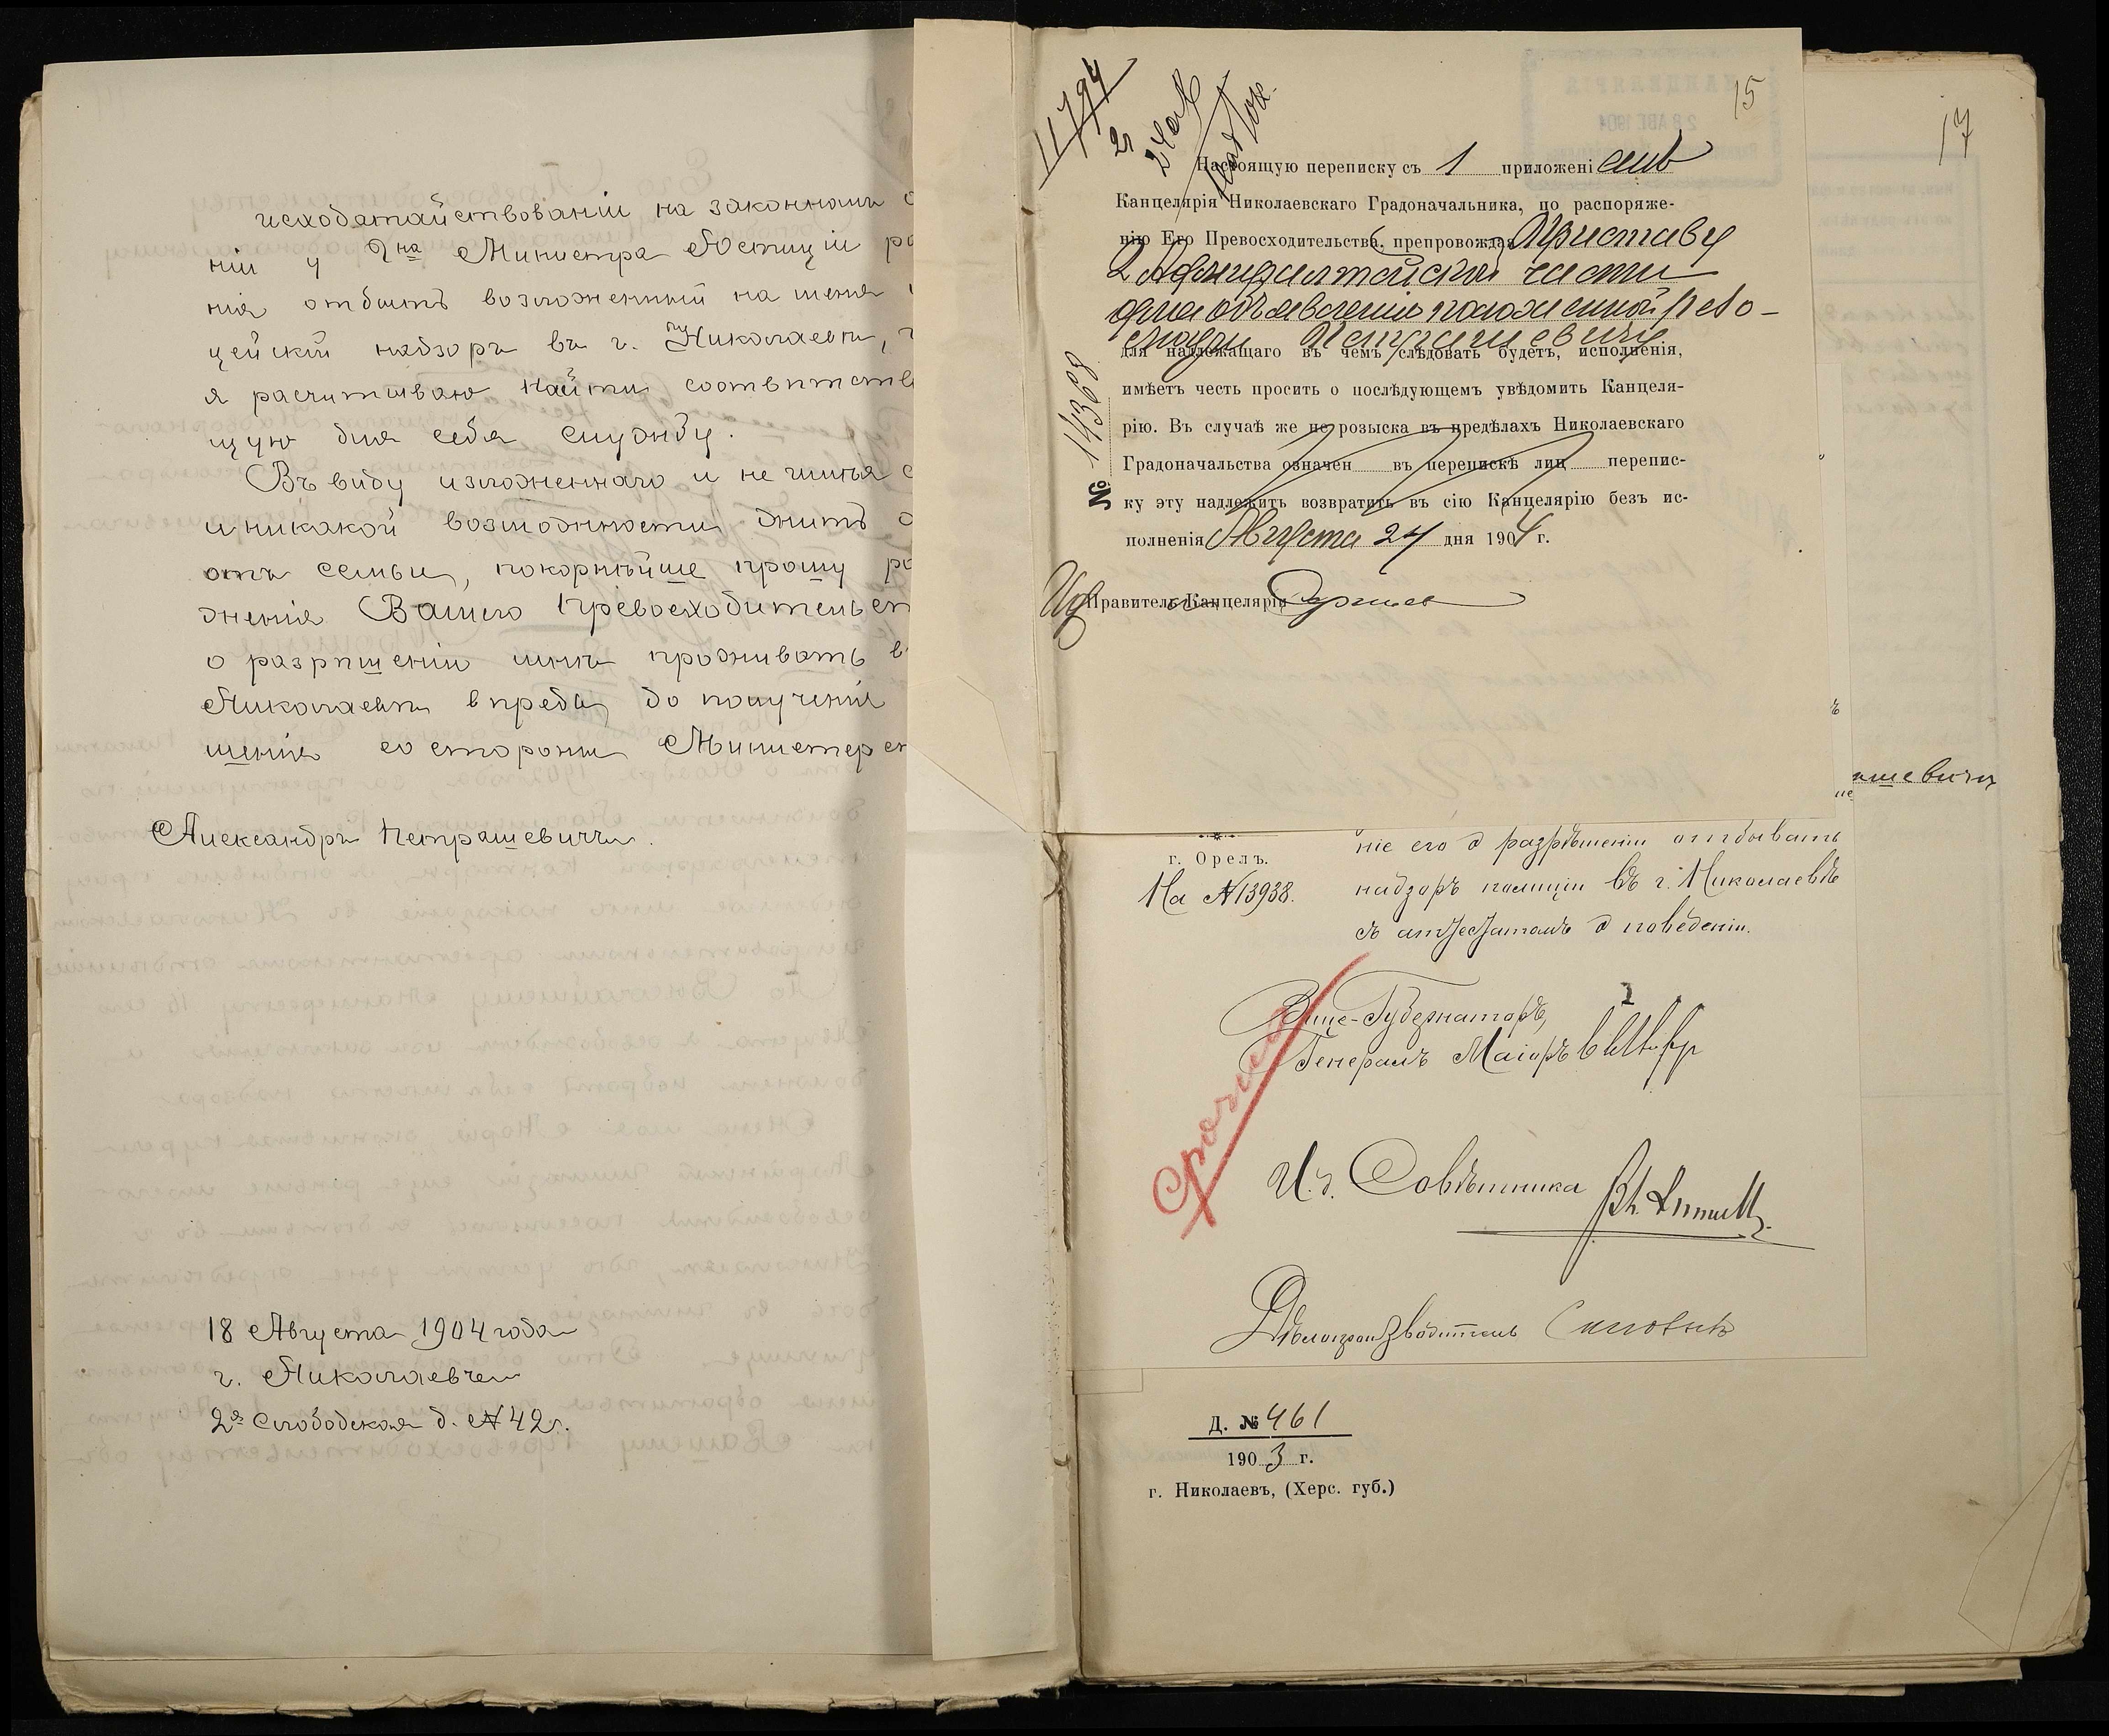 исходатайствованіи на законномъ
ніи у Гна Министра Юстиціи
нія отбыть возложенный на меня
цейскій надзоръ въ г. Николаевѣ,
я расчитываю найти соотвѣтств
щую для себя службу.
Въ виду изложеннаго и не имѣя
никакой возможности жить
отъ семьи, покорнѣйше прошу
женія Вашего Превосходительст
о разрѣшеніи мнѣ проживать в
Николаевѣ впредь до полученія
шенія со стороны Министерст
Александръ Петрашевичъ.
18 Августа 1904 года
г. Николаевъ
2я Слободская д. № 42.
11794
15
Настоящую переписку съ 1 приложеніемъ
Канцелярія Николаевскаго Градоначальника, по распоряже-
нію Его Превосходительства, препровождая Приставу
2 Адмиралтейской части
для объявленія положенной резо-
люціи Петрашевичу
для надлежащаго въ чемъ слѣдовать будетъ, исполненія,
имѣетъ честь просить о послѣдующемъ увѣдомить Канцеля-
рію. Въ случаѣ же не розыска въ предѣлахъ Николаевскаго
Градоначальства означен въ перепискѣ лиц перепис-
ку эту надлежитъ возвратить въ сію Канцелярію безъ ис-
полненія Августа 24 дня 1904 г.
№ 14368
Правитель Канцеляріи
17
ашевичъ
ніе его о разрѣшеніи отбывать
г. Орелъ.
На № 13938.
надзоръ полиціи въ г. Николаевѣ
съ аттестатомъ о поведеніи.
Срочно
Вице-Губернаторъ,
Генералъ Маіоръ
И. д. Совѣтника
Дѣлопроизводитель
Д. № 461
1903 г.
г. Николаевъ, (Херс. губ.)